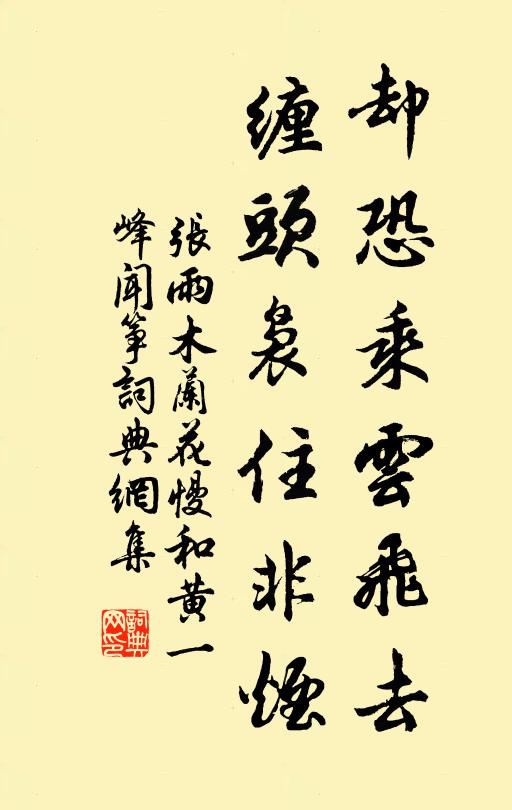 却恐乘雲飛去
纏頭裊住非煙
張雨木蘭花慢和黃一
峰聞箏詞典網集
詞典
网印